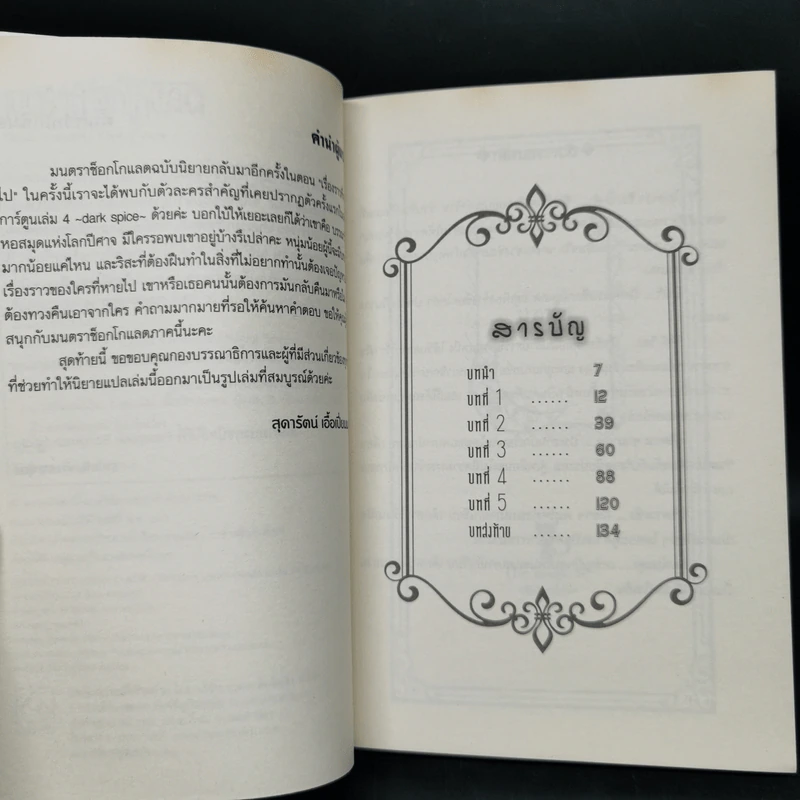 คำนำผู้
มนตราช็อกโกแลตฉบับนิยายกลับมาอีกครั้งในตอน "เรื่องราว
ไป" ในครั้งนี้เราจะได้พบกับตัวละครสำคัญที่เคยปรากฏตัวครั้งแรก
การ์ตูนเล่ม 4 ~dark spice~ ด้วยค่ะ บอกใบ้ให้เยอะเลยก็ได้ว่าเขาคือ
หอสมุดแห่งโลกปีศาจ มีใครรอพบเขาอยู่บ้างรึเปล่าคะ หนุ่มน้อยผู้นี้จะมี
มากน้อยแค่ไหน และริสะที่ต้องฝืนทำในสิ่งที่ไม่อยากทำนั้นต้องเจอ
เรื่องราวของใครที่หายไป เขาหรือเธอคนนั้นต้องการมันกลับคืนมาหรือ
ต้องทวงคืนเอาจากใคร คำถามมากมายที่รอให้ค้นหาคำตอบ ขอให้
สนุกกับมนตราช็อกโกแลตภาคนี้นะคะ
สุดท้ายนี้ ขอขอบคุณกองบรรณาธิการและผู้ที่มีส่วนเกี่ยวข้อง
ที่ช่วยทำให้นิยายแปลเล่มนี้ออกมาเป็นรูปเล่มที่สมบูรณ์ด้วยค่ะ
สุดารัตน์
สารบัญ
บทนำ 7
บทที่ 1 ...... 12
บทที่ 2 ...... 39
บทที่ 3 ...... 60
บทที่ 4 ...... 88
บทที่ 5 ...... 120
บทส่งท้าย ...... 134